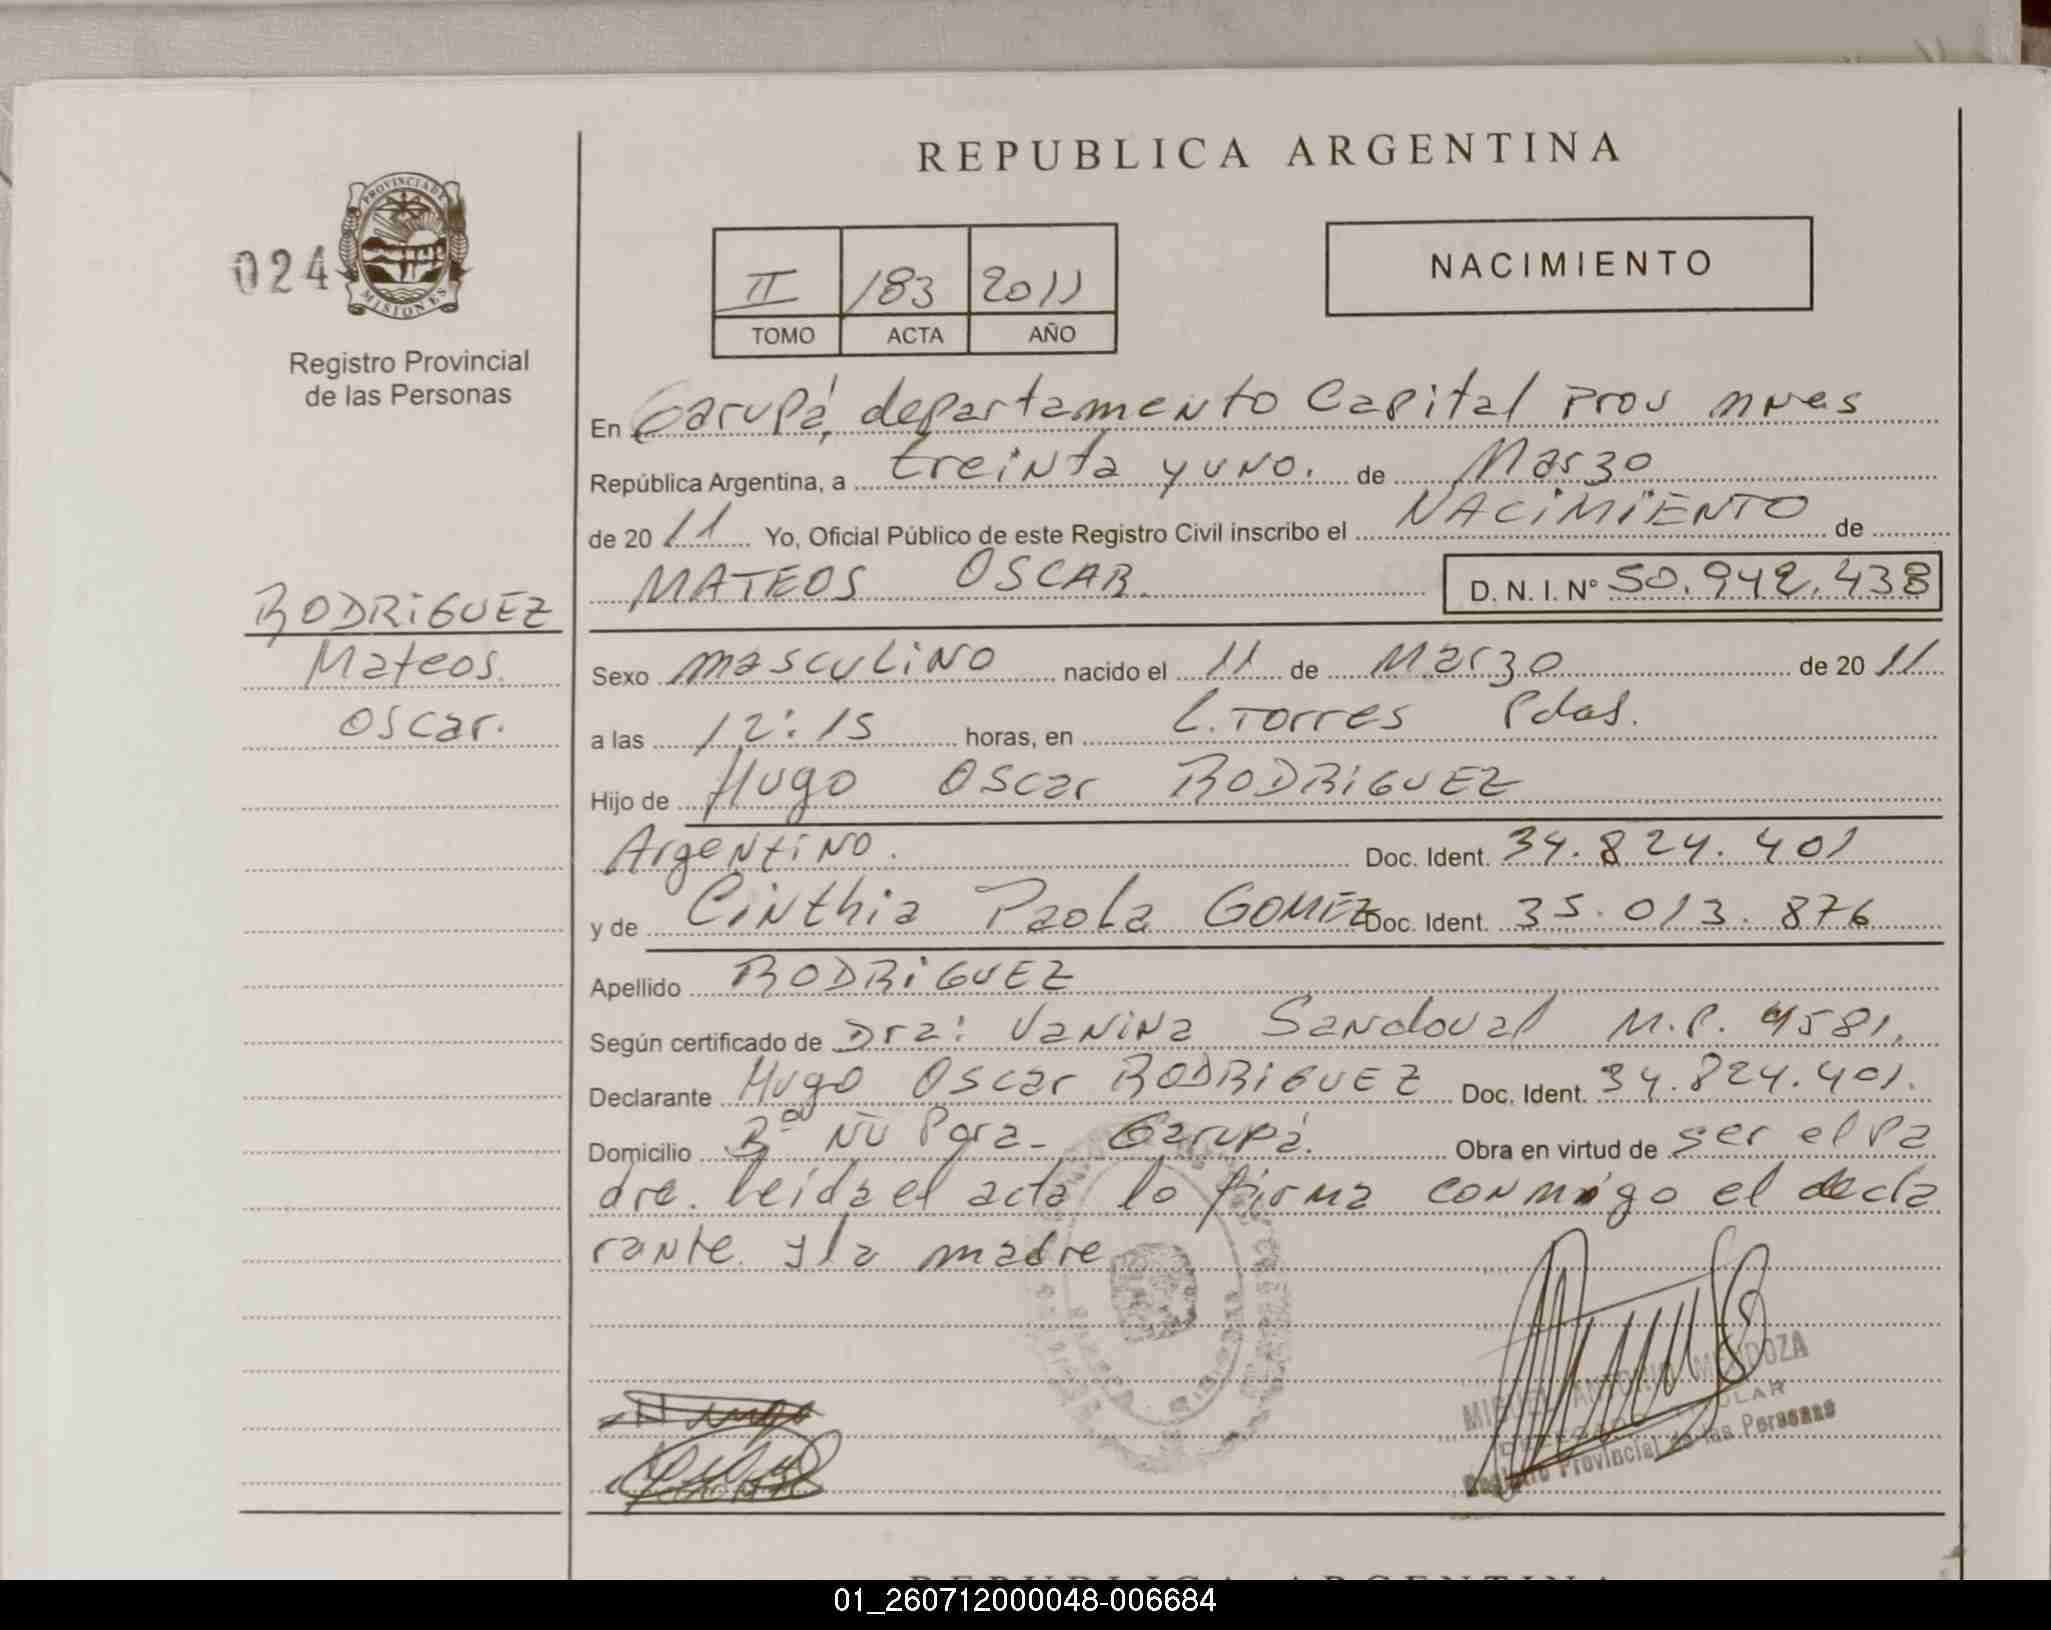 REPUBLICA ARGENTINA
024
PROVINCIA DE
MISIONES
Registro Provincial
de las Personas
II 183 2011
TOMO ACTA AÑO
NACIMIENTO
En Garupá, departamento Capital Prov mnes
República Argentina, a treinta y uno. de Marzo
de 20 11 Yo, Oficial Público de este Registro Civil inscribo el NACIMIENTO de
MATEOS OSCAR. D. N. I. N° 50.942.438
RODRIGUEZ
Mateos.
Oscar.
Sexo masculino nacido el 11 de Marzo de 20 11
a las 12:15 horas, en L. Torres Pdas.
Hijo de Hugo Oscar RODRIGUEZ
Argentino. Doc. Ident. 34.824.401
y de Cinthia Paola GOMEZ Doc. Ident. 35.013.876
Apellido RODRIGUEZ
Según certificado de Dra: Vanina Sandoval M.P. 4581.
Declarante Hugo Oscar RODRIGUEZ Doc. Ident. 34.824.401.
Domicilio Bº Ñu Pora - Garupá. Obra en virtud de ser el Pa
dre. leida el acta lo firma conmigo el decla
rante y la madre
MIGUEL ANTONIO MENDOZA
DELEGADO TITULAR
Registro Provincial de las Personas
REPUBLICA ARGENTINA
01_260712000048-006684